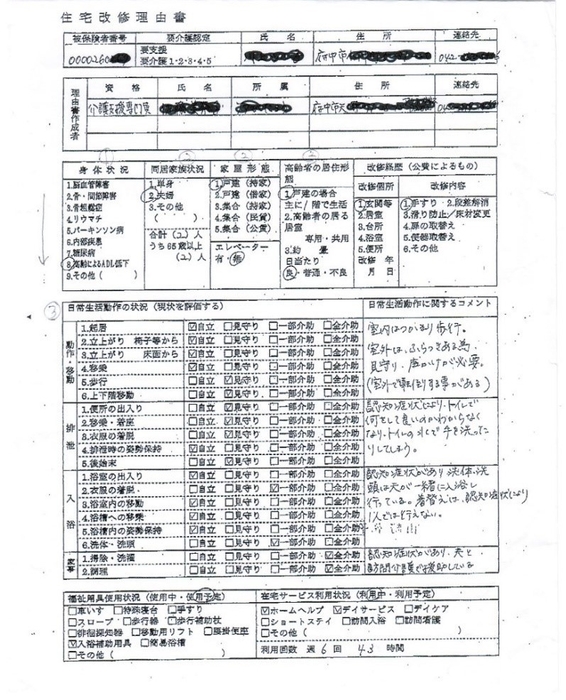 住宅改修理由書
被保険者番号 要介護認定 氏名 住所 連絡先
0000260 要支援 府中市 042
要介護1・2・3・4・5
理由書作成者 資格 氏名 所属 住所 連絡先
介護支援専門員 府中市
身体状況 同居家族状況 家屋形態 高齢者の居住形態 改修経歴(公費によるもの)
1.脳血管障害 1.単身 1.戸建(持家) 1.戸建の場合 改修個所 改修内容
2.骨・関節障害 2.夫婦 2.戸建(借家) 主に/階で生活 1.玄関等 1.手すり・2.段差解消
3.骨粗鬆症 3.その他 3.集合(持家) 2.高齢者の居る居室 2.居室 3.滑り防止/床材変更
4.リウマチ ( ) 4.集合(民賃) 専用・共用 3.台所 4.扉の取替え
5.パーキンソン病 合計(2)人 5.集合(公賃) 4.浴室 5.便器取替え
6.内部疾患 うち65歳以上 エレベーター 5.便所 6.その他
7.糖尿病 (2)人 有・無 日当たり 改修年 年
8.高齢によるADL低下 良・普通・不良 月日
9.その他( )
③ 日常生活動作の状況(現状を評価する) 日常生活動作に関するコメント
動作・移動
1.起居 ☑自立 □見守り □一部介助 □全介助
2.立上がり 椅子等から ☑自立 □見守り □一部介助 □全介助
3.立上がり 床面から ☑自立 □見守り □一部介助 □全介助
4.移乗 ☑自立 □見守り □一部介助 □全介助
5.歩行 □自立 ☑見守り □一部介助 □全介助
6.上下階移動 □自立 ☑見守り □一部介助 □全介助
室内はつかまり歩行。
室外は、ふらつきある為、
見守り、声かけが必要。
(室外で転倒する事がある)
排泄
1.便所の出入り
2.移乗・着座
3.衣服の着脱
4.排泄時の姿勢保持
5.後始末
認知症状により、トイレで
何をして良いのかわからなく
なり、トイレの水で手を洗ったり
してしまう。
入浴
1.浴室の出入り
2.衣服の着脱
3.浴室内の移動
4.浴槽への移乗
5.浴槽内の姿勢保持
6.洗体・洗頭
認知症状があり 洗体、洗
頭は夫が一緒に入浴し
行っている。着替えは、認知症状により
1人では行えない。
家事
1.掃除・洗濯 □自立 □見守り □一部介助 ☑全介助
2.調理 □自立 □見守り □一部介助 ☑全介助
認知症状があり、夫と
訪問介護が援助している
福祉用具使用状況(使用中・使用予定) 在宅サービス利用状況(利用中・利用予定)
□車いす □特殊寝台 □手すり ☑ホームヘルプ ☑デイサービス □デイケア
□スロープ □歩行器 □歩行補助杖 □ショートステイ □訪問入浴 □訪問看護
□徘徊探知器 □移動用リフト □腰掛便座 □その他( )
☑入浴補助用具 □簡易浴槽 利用回数 週 6 回 43 時間
□その他( )